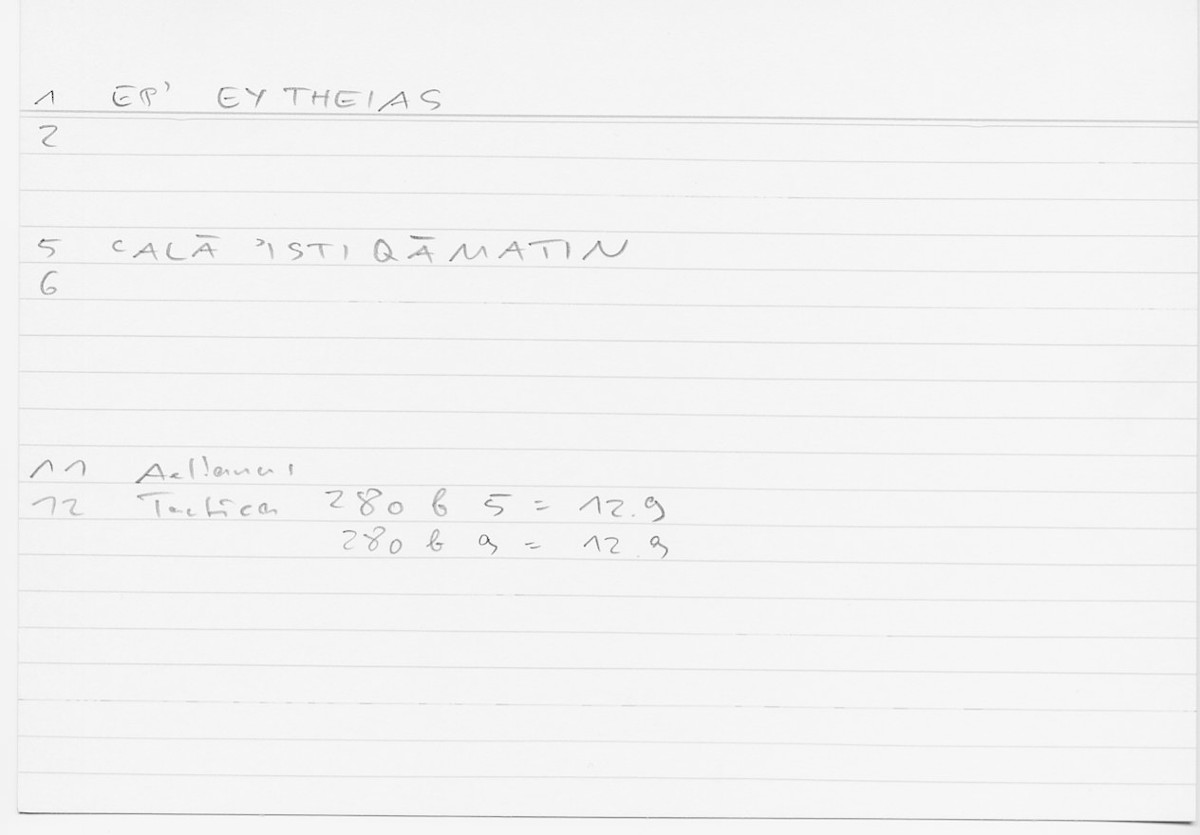 1 EP' EYTHEIAS
2
5 ʿALĀ ʾISTIQĀMATIN
6
11 Aelianus
12 Tactica 280 b 5 = 12.9
280 b 9 = 12.9